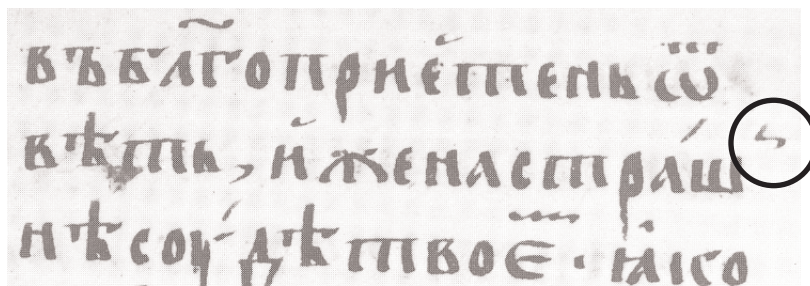 въбл҃гоприе́тень ѿ
вѣть, и҆́женастра́ш꙽
нѣсоу́дѣтвоє҃ · ꙗ҆́ко